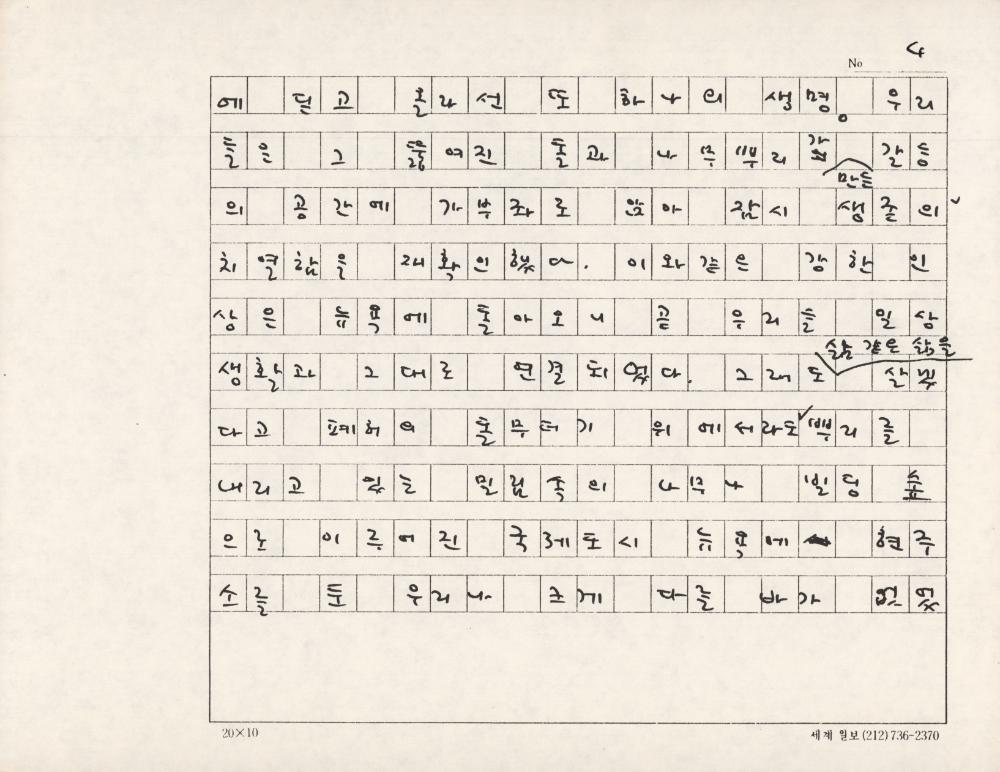 No 4
에 딛고 올라선 또 하나의 생명。 우리
들은 그 뚫여진 돌과 나무뿌리가 갈등
만듦
의 공간에 가부좌로 앉아 잠시 생존의
치열함을 재확인했다. 이와같은 강한 인
상은 뉴욕에 돌아오니 곧 우리들 일상
삶 같은 삶을
생활과 그대로 연결되었다. 그래도 살 빛
다고 폐허의 돌무더기 위에서라도 뿌리를
내리고 있는 밀림속의 나무나 빌딩 숲
으로 이루어진 국제도시 뉴욕에 현주
소를 둔 우리나 크게 다를 바가 없었
20×10
세계 일보 (212) 736-2370